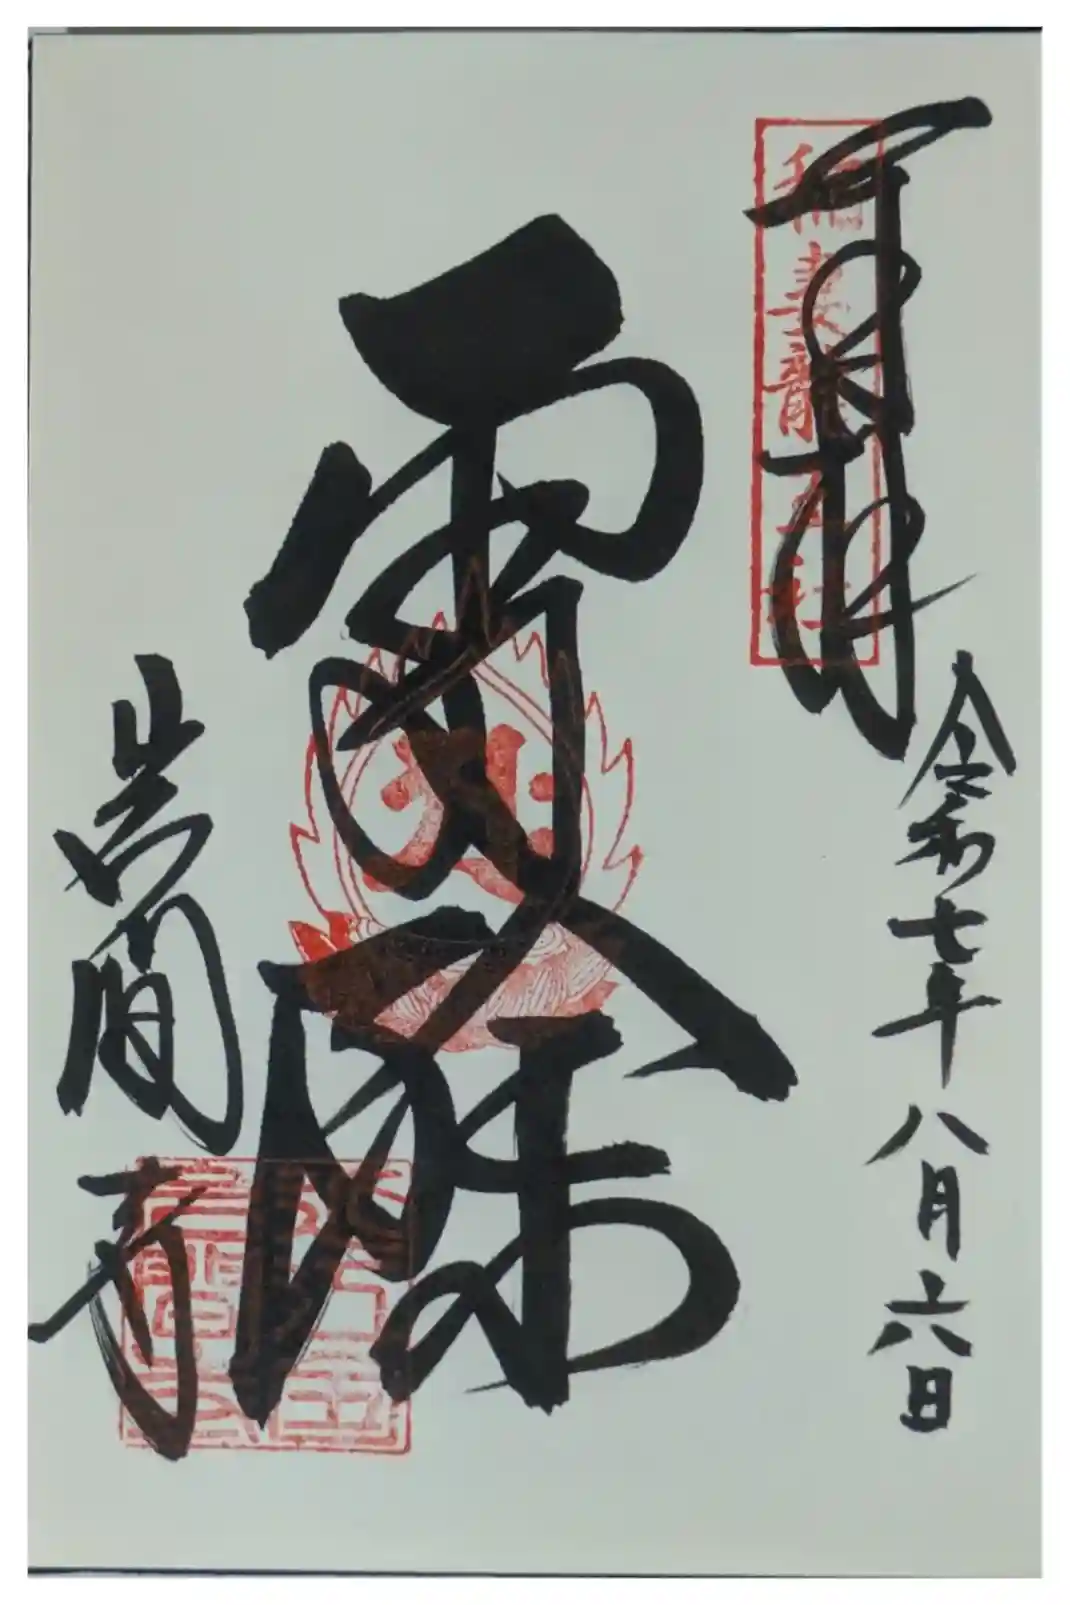 奉拝
稲妻龍王社
令和七年八月六日
雷除
岩間寺